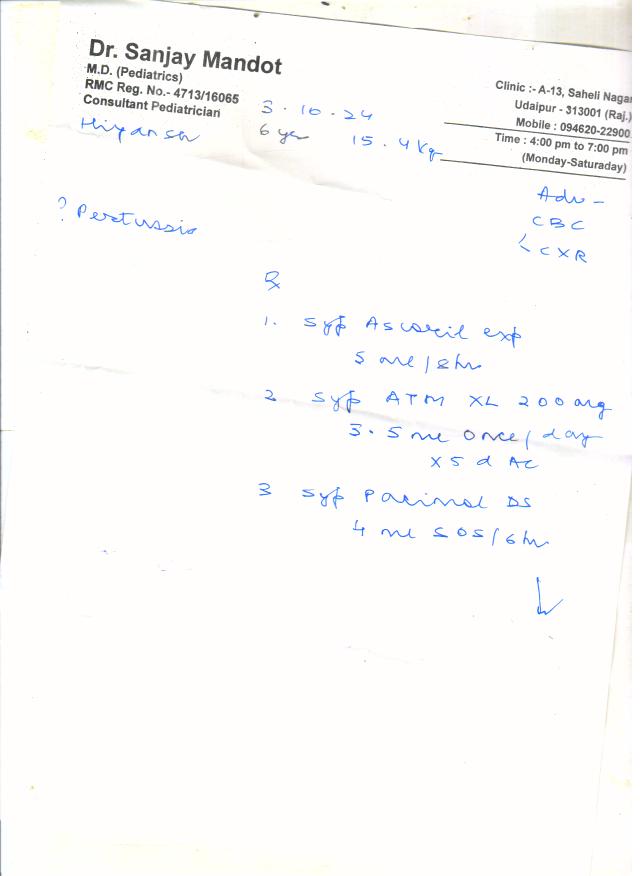 Dr. Sanjay Mandot
M.D. (Pediatrics)
RMC Reg. No.- 4713/16065
Consultant Pediatrician
Clinic :- A-13, Saheli Nagar
Udaipur - 313001 (Raj.)
Mobile : 094620-22900
Time : 4:00 pm to 7:00 pm
(Monday-Saturaday)
3.10.24
6 yr 15.4 kg
Adv -
CBC
CXR
? Pertussis
Rx
1. Syp Ascoril exp
5 ml / 8hr
2 Syp ATM XL 200 mg
3.5 ml once / day
x 5 d AC
3 Syp Pacimol DS
4 ml SOS / 6 hr